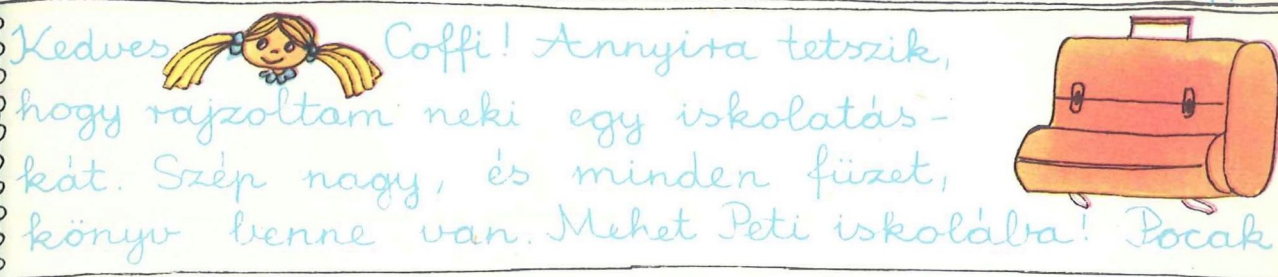 Kedves Coffi! Annyira tetszik,
hogy rajzoltam neki egy iskolatás-
kát. Szép nagy, és minden füzet,
könyv benne van. Mehet Peti iskolába! Pocak